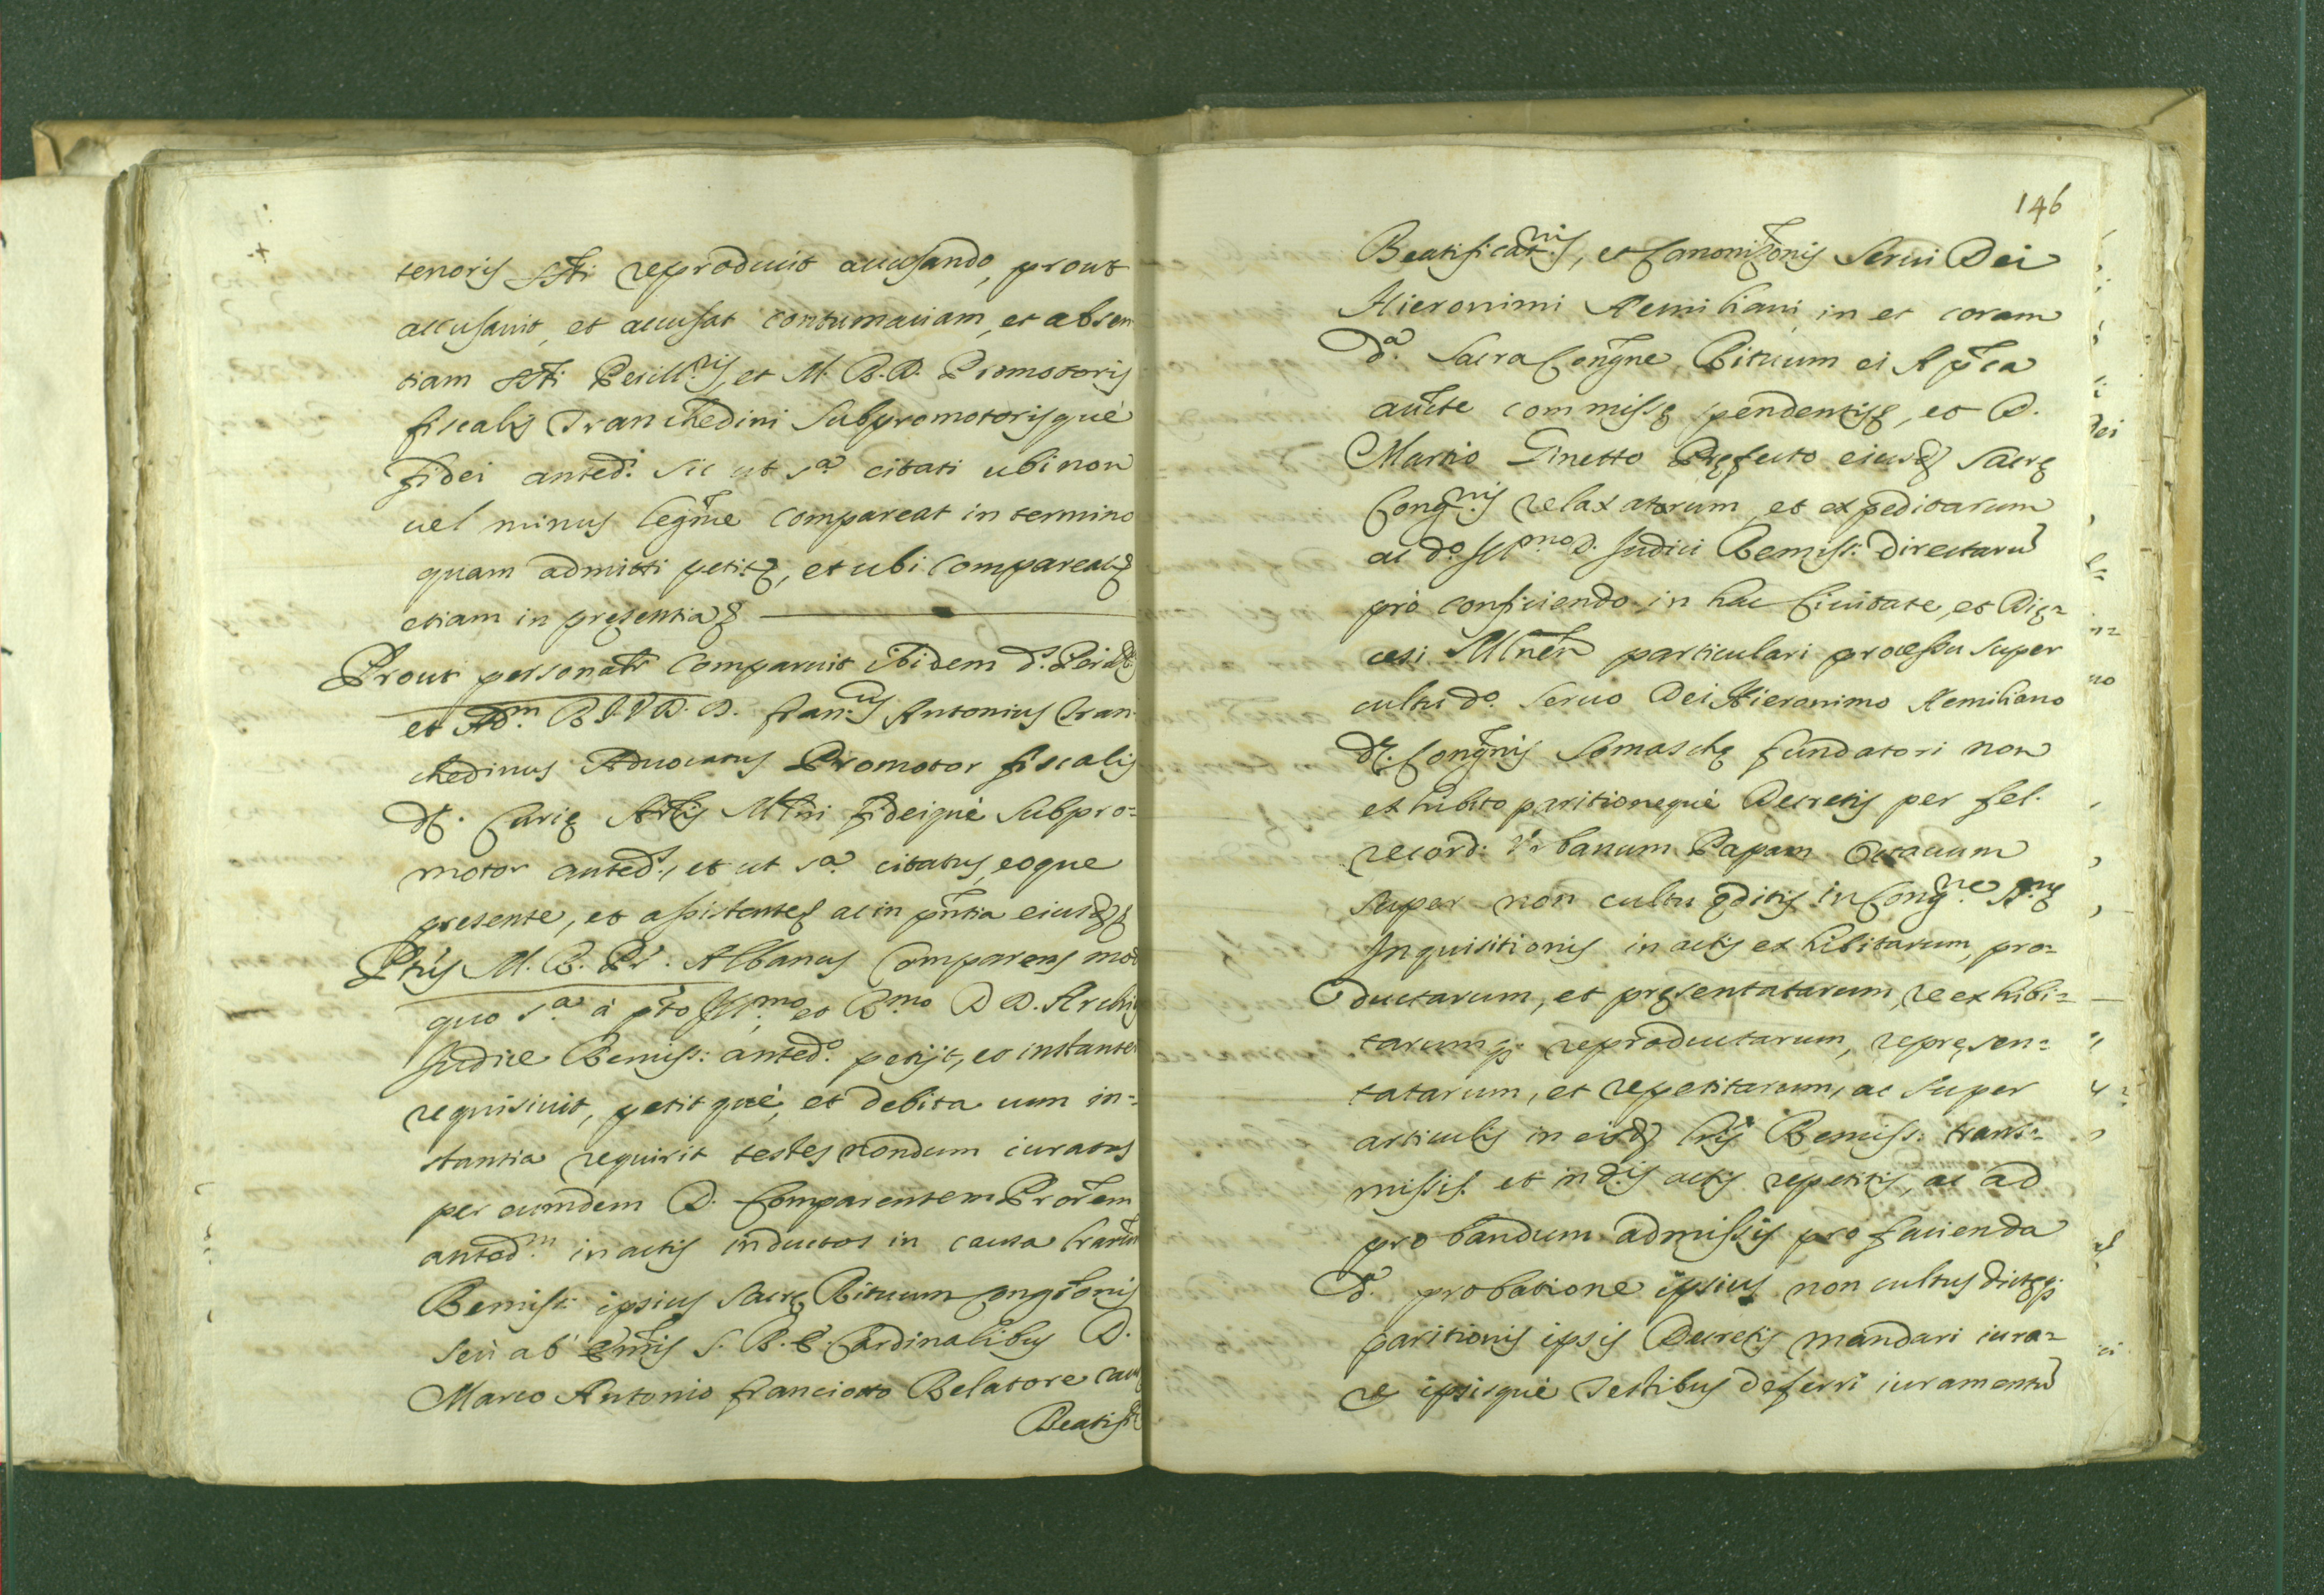 tenoris reproduxit accusando, prout
accusauit, et accusat contumaciam, et absen
tiam et M. R. D. Promotoris
fiscalis Tranchedini Subpromotorisquè
fidei anted.i sic ut s.a citati ubi non
uel minus legme compareat in termino
quam admitti petit, et ubi compareat
etiam in pręsentia
Prout comparuit ibidem d.
et Ad.m R. I. V. D. D. Fran.cus Antonius Tran
chedinus Aduocatus Promotor fiscalis
Curię fideiquè Subpro=
motor anted.s, et ut s.a citatus, eoque
presente, et assistente, ac in pntia
M. R. Pr. Albanus Comparens mod
quo s.a à pto Ill.mo, et R.mo D D. Archi
Iudice Remiss: anted.o petijt, et instanter
requisiuit, petitquè, et debita cum in=
stantia requirit testes nondum iuratos
per eumdem D. Comparentem Prorem
anted.m in actis inductos in causa
Remiss: ipsius Sacrę Rituum Congtonis
seù ab Emis S. R. E. Cardinalibus D.
Marco Antonio Franciotto Relatore
Beatif
146
Beatificat.nis, et Canonizonis Serui Dei
Hieronimi Aemiliani in et coram
d.a Sacra Congne Rituum ei Apca
aucte commissę pendentis, et D.
Martio Ginetto Pręfecto eiusd Sacrę
Cong.nis relaxatarum, et expeditarum
ac d.o Ill.mo D. Iudici Remiss: directarũ
prò conficiendo in hac Ciuitate, et Dię=
cesi particulari processu super
cultu d.o Seruo Dei Hieronimo Aemiliano
Congnis Somaschę fundatori non
exhibito paritionequè Decretis per fel.
record: Vrbanum Papam Octauum
super non cultu ęditis in Cong.ne
Inquisitionis in actis exhibitarum, pro=
ductarum, et pręsentatarum, reexhibi=
tarumq; reproductarum, repręsen=
tatarum, et repetitarum, ac super
articulis in eisd Remiss: trans=
missis et in d.is actis repetitis, ac ad
probandum admissis pro facienda
d.a probatione ipsius non cultus dictęq;
paritionis ipsis Decretis mandari iura=
re ipsisquè testibus deferri iuramentũ